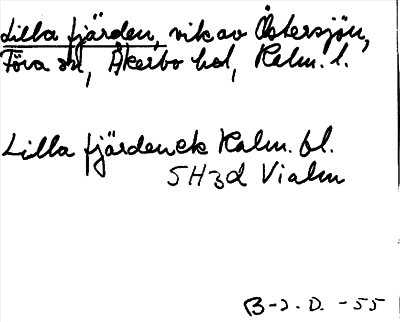 Lilla fjärden, vik av Östersjön,
Föra sn, Åkerbo hd, Kalm. l.
Lilla fjärden ek Kalm. bl.
5H3d Vialm
B-2. D. -55